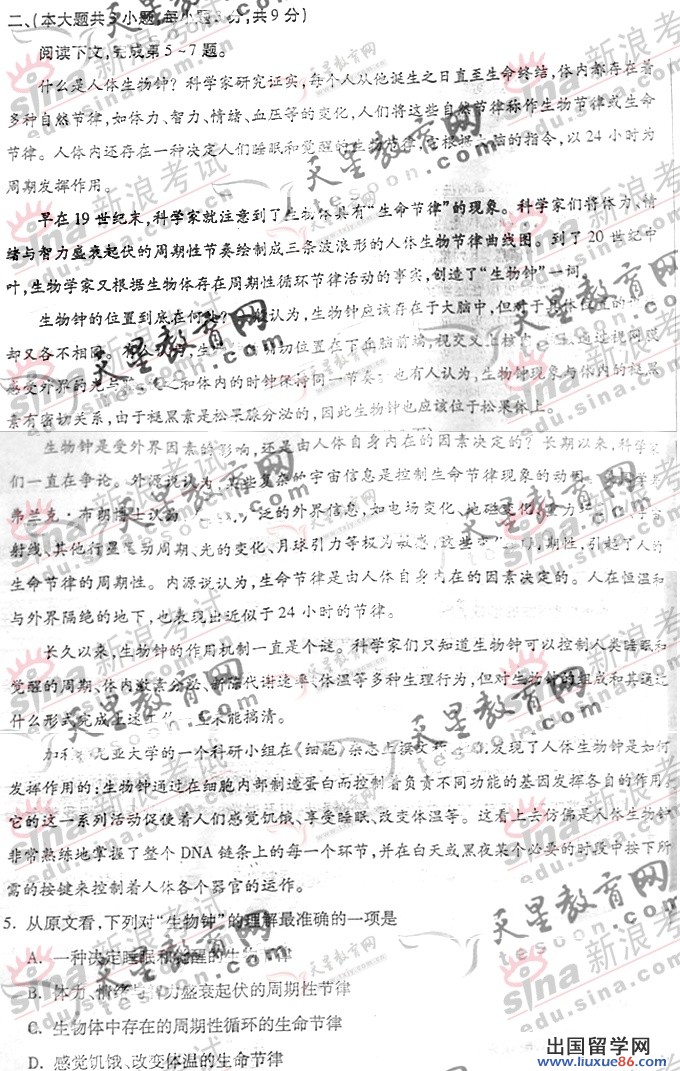 二、(本大题共3小题,每小题3分,共9分)
阅读下文,完成第5~7题。
什么是人体生物钟?科学家研究证实,每个人从他诞生之日直至生命终结,体内都存在着
多种自然节律,如体力、智力、情绪、血压等的变化,人们将这些自然节律称作生物节律或生命
节律。人体内还存在一种决定人们睡眠和觉醒的生物节律,它根据大脑的指令,以24小时为
周期发挥作用。
早在19世纪末,科学家就注意到了生物体具有“生命节律”的现象。科学家们将体力、情
绪与智力盛衰起伏的周期性节奏绘制成三条波浪形的人体生物节律曲线图。到了20世纪中
叶,生物学家又根据生物体存在周期性循环节律活动的事实,创造了“生物钟”一词。
生物钟的位置到底在何处?认为,生物钟应该存在于大脑中,但对于具体位置的
却又各不相同。有人认为,生物钟的确切位置在下丘脑前端,视交叉上核内,通过视网膜
感受外界的光与和体内的时钟保持同一节奏。也有人认为,生物钟现象与体内的褪黑
素有密切关系,由于褪黑素是松果腺分泌的,因此生物钟也应该位于松果体上。
生物钟是受外界因素的影响,还是由人体自身内在的因素决定的?长期以来,科学家
们一直在争论。外源说认为,某些复杂的宇宙信息是控制生命节律现象的动因。
弗兰克·布朗博士认为,泛的外界信息,如电场变化、地磁变化、重力
射线、其他行星运动周期、光的变化、月球引力等极为敏感,这些变期性,引起了人的
生命节律的周期性。内源说认为,生命节律是由人体自身内在的因素决定的。人在恒温和
与外界隔绝的地下,也表现出近似于24小时的节律。
长久以来,生物钟的作用机制一直是个谜。科学家们只知道生物钟可以控制人类睡眠和
觉醒的周期、体内激素分泌、新陈代谢速率、体温等多种生理行为,但对生物钟的组成和其通过
什么形式完成上述工作,未能搞清。
加利亚大学的一个科研小组在《细胞》杂志上撰文,发现了人体生物钟是如何
发挥作用的:生物钟通过在细胞内部制造蛋白而控制着负责不同功能的基因发挥各自的作用。
它的这一系列活动促使着人们感觉饥饿、享受睡眠、改变体温等。这看上去仿佛是人体生物钟
非常熟练地掌握了整个DNA链条上的每一个环节,并在白天或黑夜某个必要的时段中按下所
需的按键来控制着人体各个器官的运作。
5. 从原文看,下列对“生物钟”的理解最准确的一项是
A. 一种决定睡眠和觉醒的生命节律
B. 体力、情绪与智力盛衰起伏的周期性节律
C. 生物体中存在的周期性循环的生命节律
D. 感觉饥饿、改变体温的生命节律
天星教育网
tesoon.com
sina新浪考试
edu.sina.com.cn
出国留学网
www.liuxue86.com